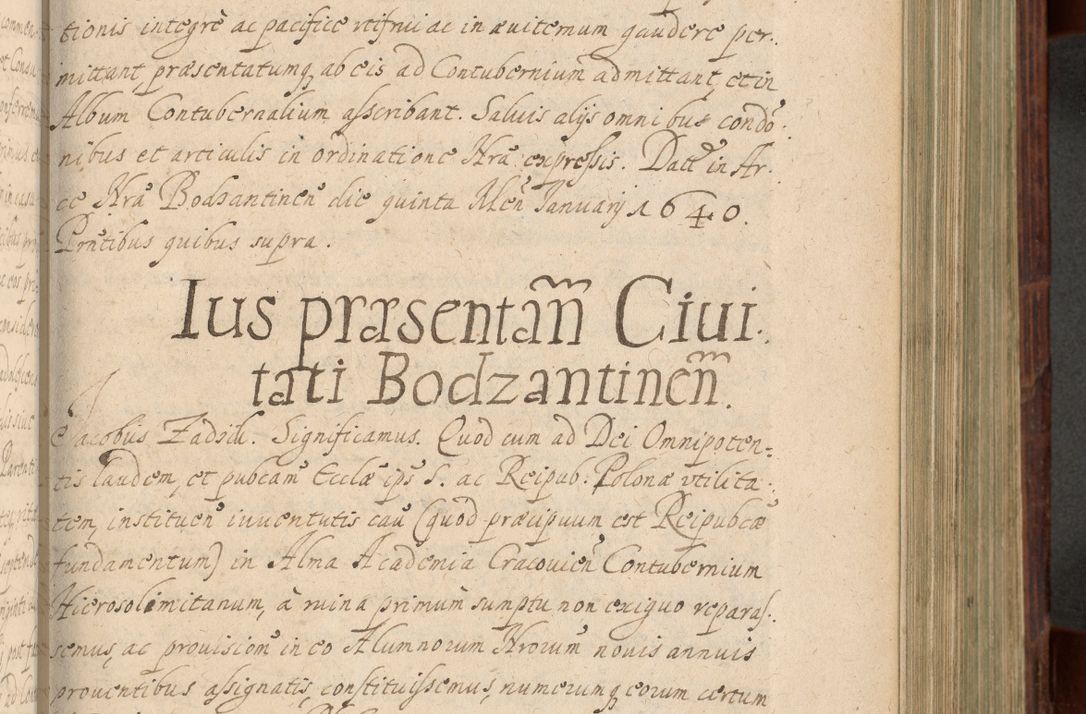 tionis integrè ac pacifice utifrui ac in æuiternum gaudere per.
mittant, præsentatumq, ab eis ad Contubernium admittant, et in
Album Contubernalium asscribant. Saluis alijs omnibus condō.
nibus et articulis in ordinatione Nrā expressis. Datt in Ar.
ce Nrā Bodzantineñ die quinta Meñ Januarij 1640.
Prñtibus quibus supra.
Ius præsentañ Ciui.
tati Bodzantineñ.
Jacobus Zadzik. Significamus. Quod cum ad Dei Omnipoten=
tis laudem, et pubcam Ecclæ ips S. ac Reipub. Polonæ vtilita.
tem, instituen iuuentutis cau (quod præcipuum est Reipubcæ
fundamentum) in Alma Academia Cracouieñ Contubernium
Hierosolimitanum, à ruina primum sumptu non exiguo reparas.
semus, ac prouisiom in eo Alumnorum Nrorum nouis annuis
prouentibus assignatis, constituissemus, numerumq eorum certum